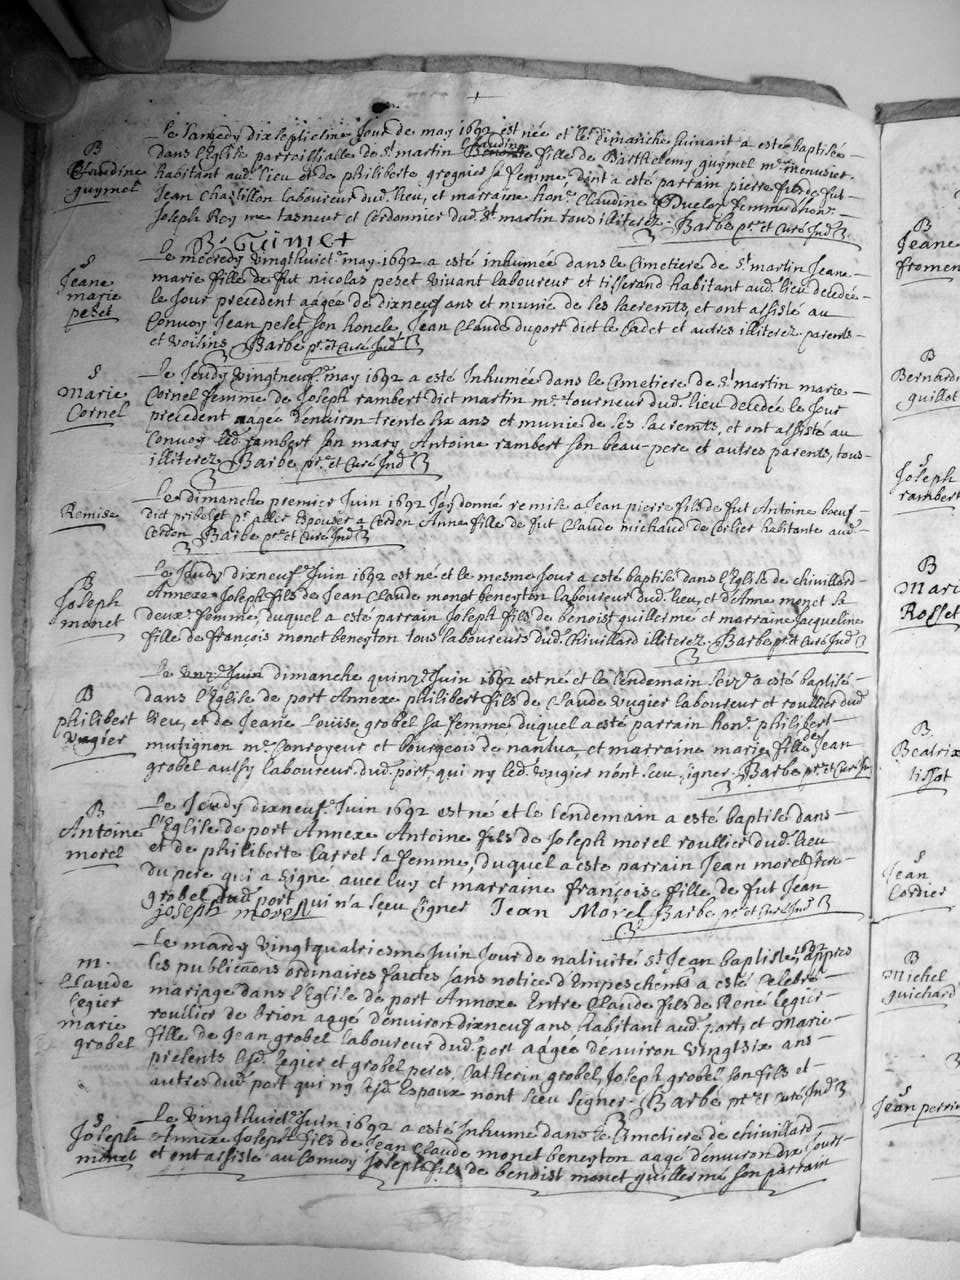 B
Claudine
guymet
Le samedy dixseptiesme Jour de may 1692 est née et le dimanche suivant a esté baptisée
dans l'Eglise parroissialle de St martin Claudine fille de Barthelemy guymet me menusier
habitant aud. lieu et de philiberte grognier sa femme dont a esté parrain pierre fils de fut
Jean Chatillon laboureur dud. lieu, et marraine hone Claudine femme d'hone
Joseph Roy me tasneur et Cordonnier dud. St martin tous illiterez Barbe ptre et Curé Ind
B. Guimet
S
Jeane
marie
peset
Le mecredy vingthuict may 1692 a esté inhumée dans le Cimetiere de St martin Jeane
marie fille de fut nicolas peset vivant laboureur et tisserand habitant aud. lieu decedée
le Jour precedent aagée de dixneuf ans et munie de ses sacremts, et ont assisté au
Convoy Jean peset son honcle, Jean Claude duport dict le Cadet et autres illiterez parents
et voisins Barbe ptre et Curé Ind
S
Marie
Cornel
Le Jeudy vingtneuf may 1692 a esté Inhumée dans le Cimetiere de St martin marie
Cornel femme de Joseph rambert dict martin me tourneur dud. lieu decedée le Jour
precedent aagée d'environ trente six ans et munie de ses sacremts, et ont assisté au
Convoy led. rambert son mary Antoine rambert son beau-pere et autres parents, tous
illiterez Barbe ptre et Curé Ind
Remise
Le dimanche premier Juin 1692 J'ay donné remise a Jean pierre fils de fut Antoine boeuf
dict pr aller Espouser a Cerdon Anne fille de fut Claude michaud de Corlier habitante aud.
Cerdon Barbe ptre et Curé Ind
B
Joseph
monet
Le Jeudy dixneuf Juin 1692 est né et le mesme Jour a esté baptisé dans l'Eglise de chivillard
Annexe Joseph fils de Jean Claude monet beneyton laboureur dud. lieu, et d'Anne monet sa
deuxe femme, duquel a esté parrain Joseph fils de benoist guillerme et marraine Jacqueline
fille de françois monet beneyton tous laboureurs dud. Chivillard illiterez Barbe ptre et Curé Ind
B
philibert
Vugier
Le Juin dimanche quinze Juin 1692 est né et le lendemain seize a esté baptisé
dans l'Eglise de port Annexe philibert fils de Claude vugier laboureur et roullier dud.
lieu, et de Jeane Louise grobel sa femme duquel a esté parrain hone philibert
mutignon me Conroyeur et bourgeois de nantua, et marraine marie fille de Jean
grobel aussy laboureur dud. port, qui ny led. vougier n'ont sceu signer Barbe ptre et Curé Ind
B
Antoine
morel
Le Jeudy dixneuf Juin 1692 est né et le lendemain a esté baptisé dans
l'Eglise de port Annexe Antoine fils de Joseph morel roullier dud. lieu
et de philiberte Carret sa femme, duquel a esté parrain Jean morel frere
du pere qui a signé avec luy et marraine françoise fille de fut Jean
grobel dud. port qui n'a sceu signer Jean Morel Barbe ptre et Curé Ind
joseph morel
m.
Claude
legier
marie
grobel
Le mardy vingtquatriesme Juin Jour de nativité St Jean baptiste, 1692 appres
les publicaons ordinaires faictes sans notice d'Empeschemt a esté Celebré
mariage dans l'Eglise de port Annexe Entre Claude fils de René legier
roullier de brion aagé d'environ dixneuf ans habitant aud. port, et Marie
fille de Jean grobel laboureur dud. port aagée d'environ vingtsix ans
presents lesd. legier et grobel peres, Catherin grobel, Joseph grobel son fils et
autres dud. port qui ny lesd. Espoux n'ont sceu signer Barbe ptre et Curé Ind
S
Joseph
monet
Le vingthuict Juin 1692 a esté Inhumé dans le Cimetiere de chivillard
Annexe Joseph fils de Jean Claude monet beneyton aagé d'environ dix Jours
et ont assisté au Convoy Joseph fils de benoist monet guillermé son parrain
B
Jeane
fromen
B
Bernard
guillot
S
Joseph
rambert
B
Mari
Rosset
B
Beatrix
lissot
S
Jean
Cordier
B
Michel
guichard
S
Jean perrin